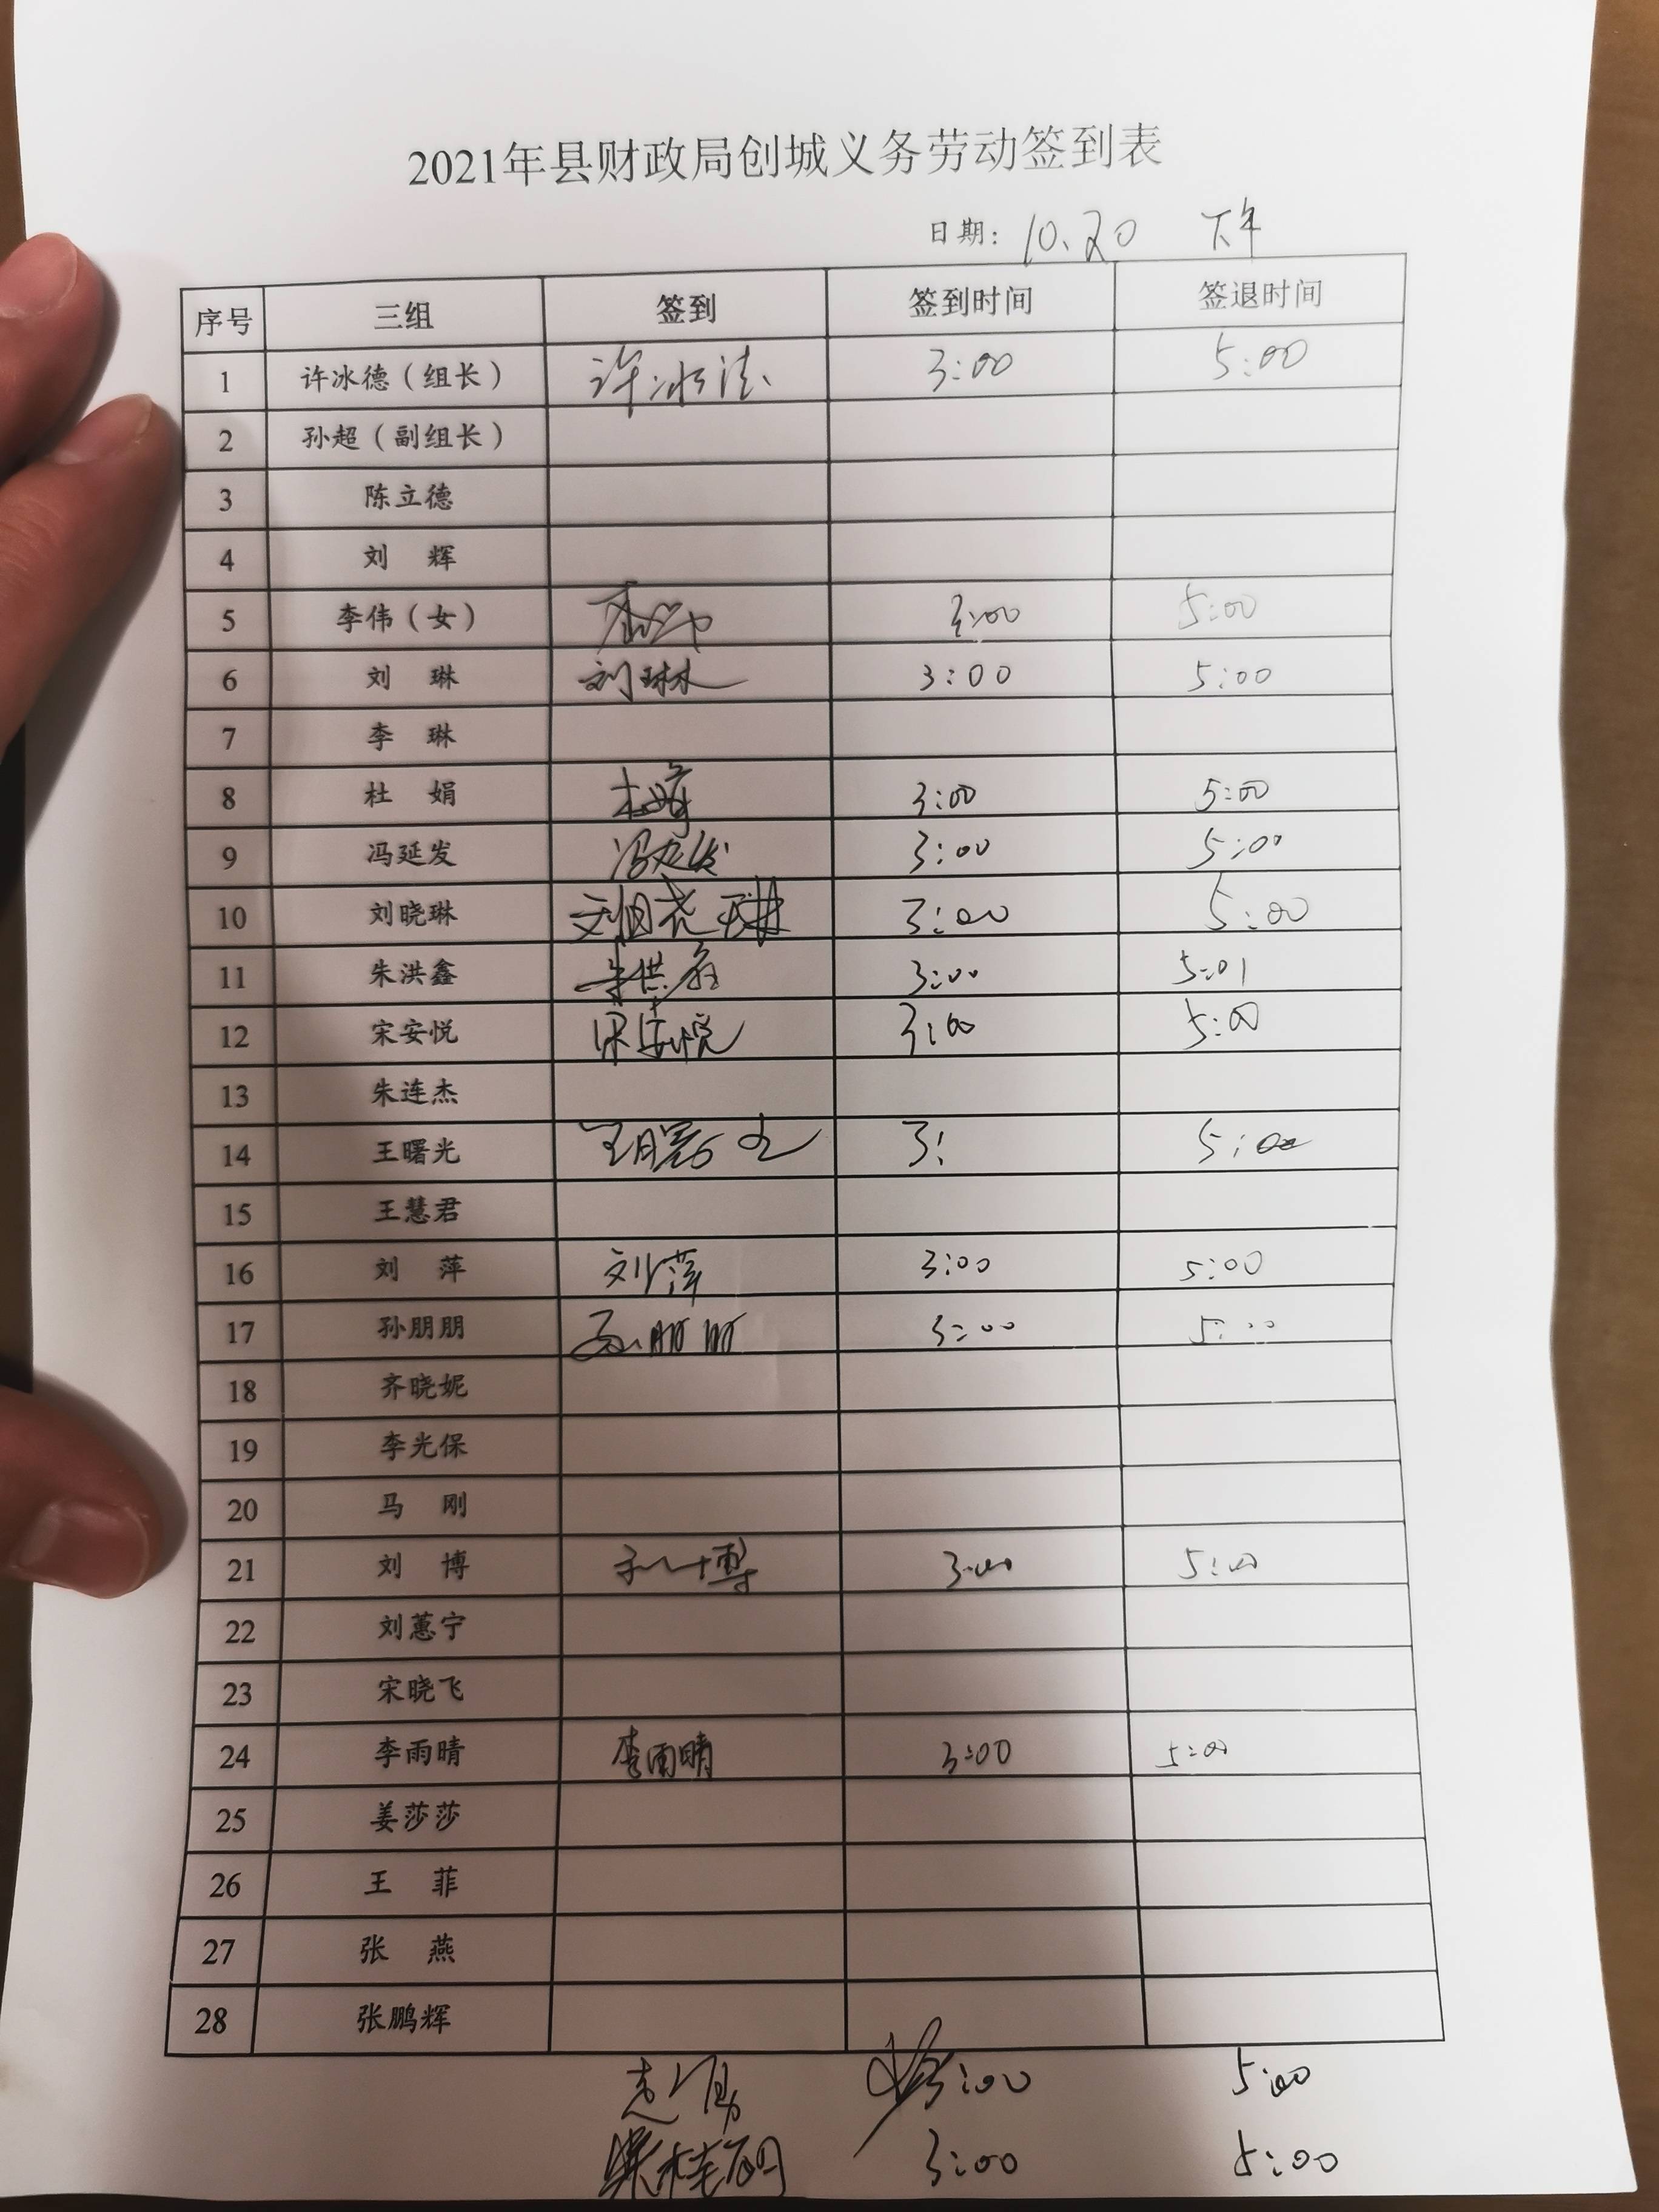 2021年县财政局创城义务劳动签到表
日期: 10.20 下午
序号 三组 签到 签到时间 签退时间
1 许冰德（组长） 许冰德 3:00 5:00
2 孙超（副组长）
3 陈立德
4 刘 辉
5 李伟（女） 李伟 3:00 5:00
6 刘 琳 刘琳 3:00 5:00
7 李 琳
8 杜 娟 杜娟 3:00 5:00
9 冯延发 冯延发 3:00 5:00
10 刘晓琳 刘晓琳 3:00 5:00
11 朱洪鑫 朱洪鑫 3:00 5:01
12 宋安悦 宋安悦 3:00 5:00
13 朱连杰
14 王曙光 王曙光 3: 5:00
15 王慧君
16 刘 萍 刘萍 3:00 5:00
17 孙朋朋 孙朋朋 3:00 5:00
18 齐晓妮
19 李光保
20 马 刚
21 刘 博 刘博 3:00 5:00
22 刘蕙宁
23 宋晓飞
24 李雨晴 李雨晴 3:00 5:00
25 姜莎莎
26 王 菲
27 张 燕
28 张鹏辉
3:00 5:00
3:00 5:00